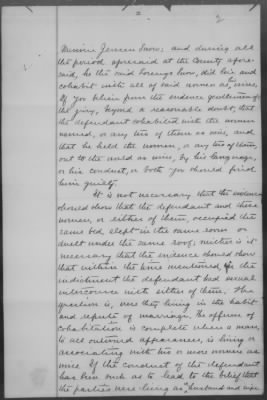 2
Minnie Jensen Snow; and during all
the period aforesaid at the County afore-
said, he the said Lorenzo Snow, did live and
cohabit with all of said women as his wives.
If you believe from the evidence gentlemen of
the jury, beyond a reasonable doubt, that
the defendant cohabited with the women
named, or any two of them as wives, and
that he held the women, or any two of them,
out to the world as wives, by his language,
or his conduct, or both you should find
him guilty.
It is not necessary that the evidence
should show that the defendant and these
women, or either of them, occupied the
same bed, slept in the same room or
dwelt under the same roof; neither is it
necessary that the evidence should show
that within the time mentioned in the
indictment the defendant had sexual
intercourse with either of them. The
question is, were they living in the habit
and repute of marriage. The offense of
cohabitation is complete when a man,
to all outward appearances, is living or
associating with two or more women as
wives. If the conduct of the defendant
has been such as to lead to the belief that
the parties were living as "husband and wife